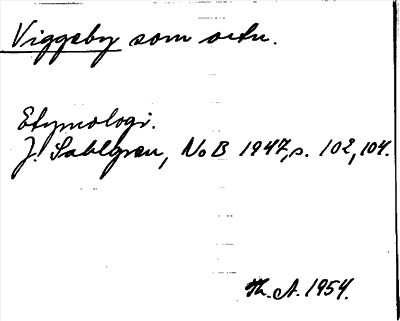 Viggeby som ortn.
Etymologi.
J. Sahlgren, NoB 1947, s. 102, 104.
Th. A. 1954.